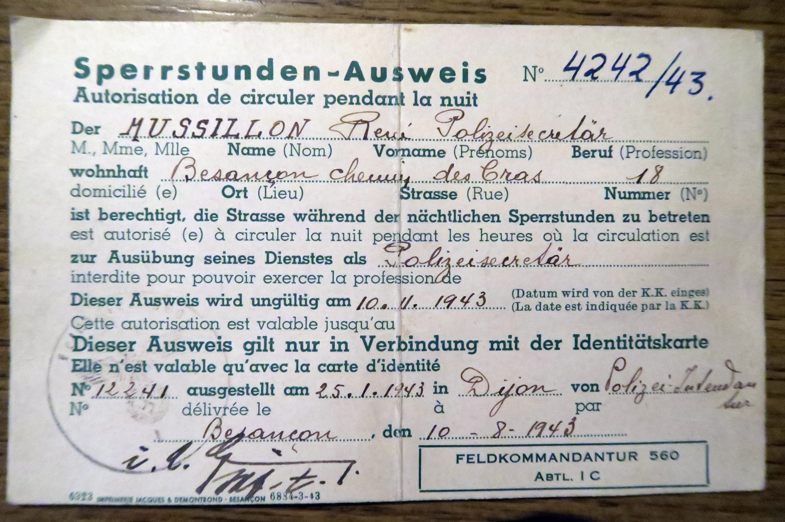 Sperrstunden-Ausweis Nº 4242/43.
Autorisation de circuler pendant la nuit
Der MUSSILLON René Polizeisecretär
M., Mme, Mlle Name (Nom) Vorname (Prénoms) Beruf (Profession)
wohnhaft Besançon chemin des Cras 18
domicilié (e) Ort (Lieu) Strasse (Rue) Nummer (Nº)
ist berechtigt, die Strasse während der nächtlichen Sperrstunden zu betreten
est autorisé (e) à circuler la nuit pendant les heures où la circulation est
zur Ausübung seines Dienstes als Polizeisecretär
interdite pour pouvoir exercer la profession de
Dieser Ausweis wird ungültig am 10.11.1943 (Datum wird von der K.K. einges)
Cette autorisation est valable jusqu'au (La date est indiquée par la K.K.)
Dieser Ausweis gilt nur in Verbindung mit der Identitätskarte
Elle n'est valable qu'avec la carte d'identité
Nº 12241 ausgestellt am 25.1.1943 in Dijon von Polizei-Intendan
Nº délivrée le à par
Besançon, den 10-8-1943
FELDKOMMANDANTUR 560
ABTL. I C
6923 IMPRIMERIE JACQUES & DEMONTROND - BESANÇON 6834-3-43